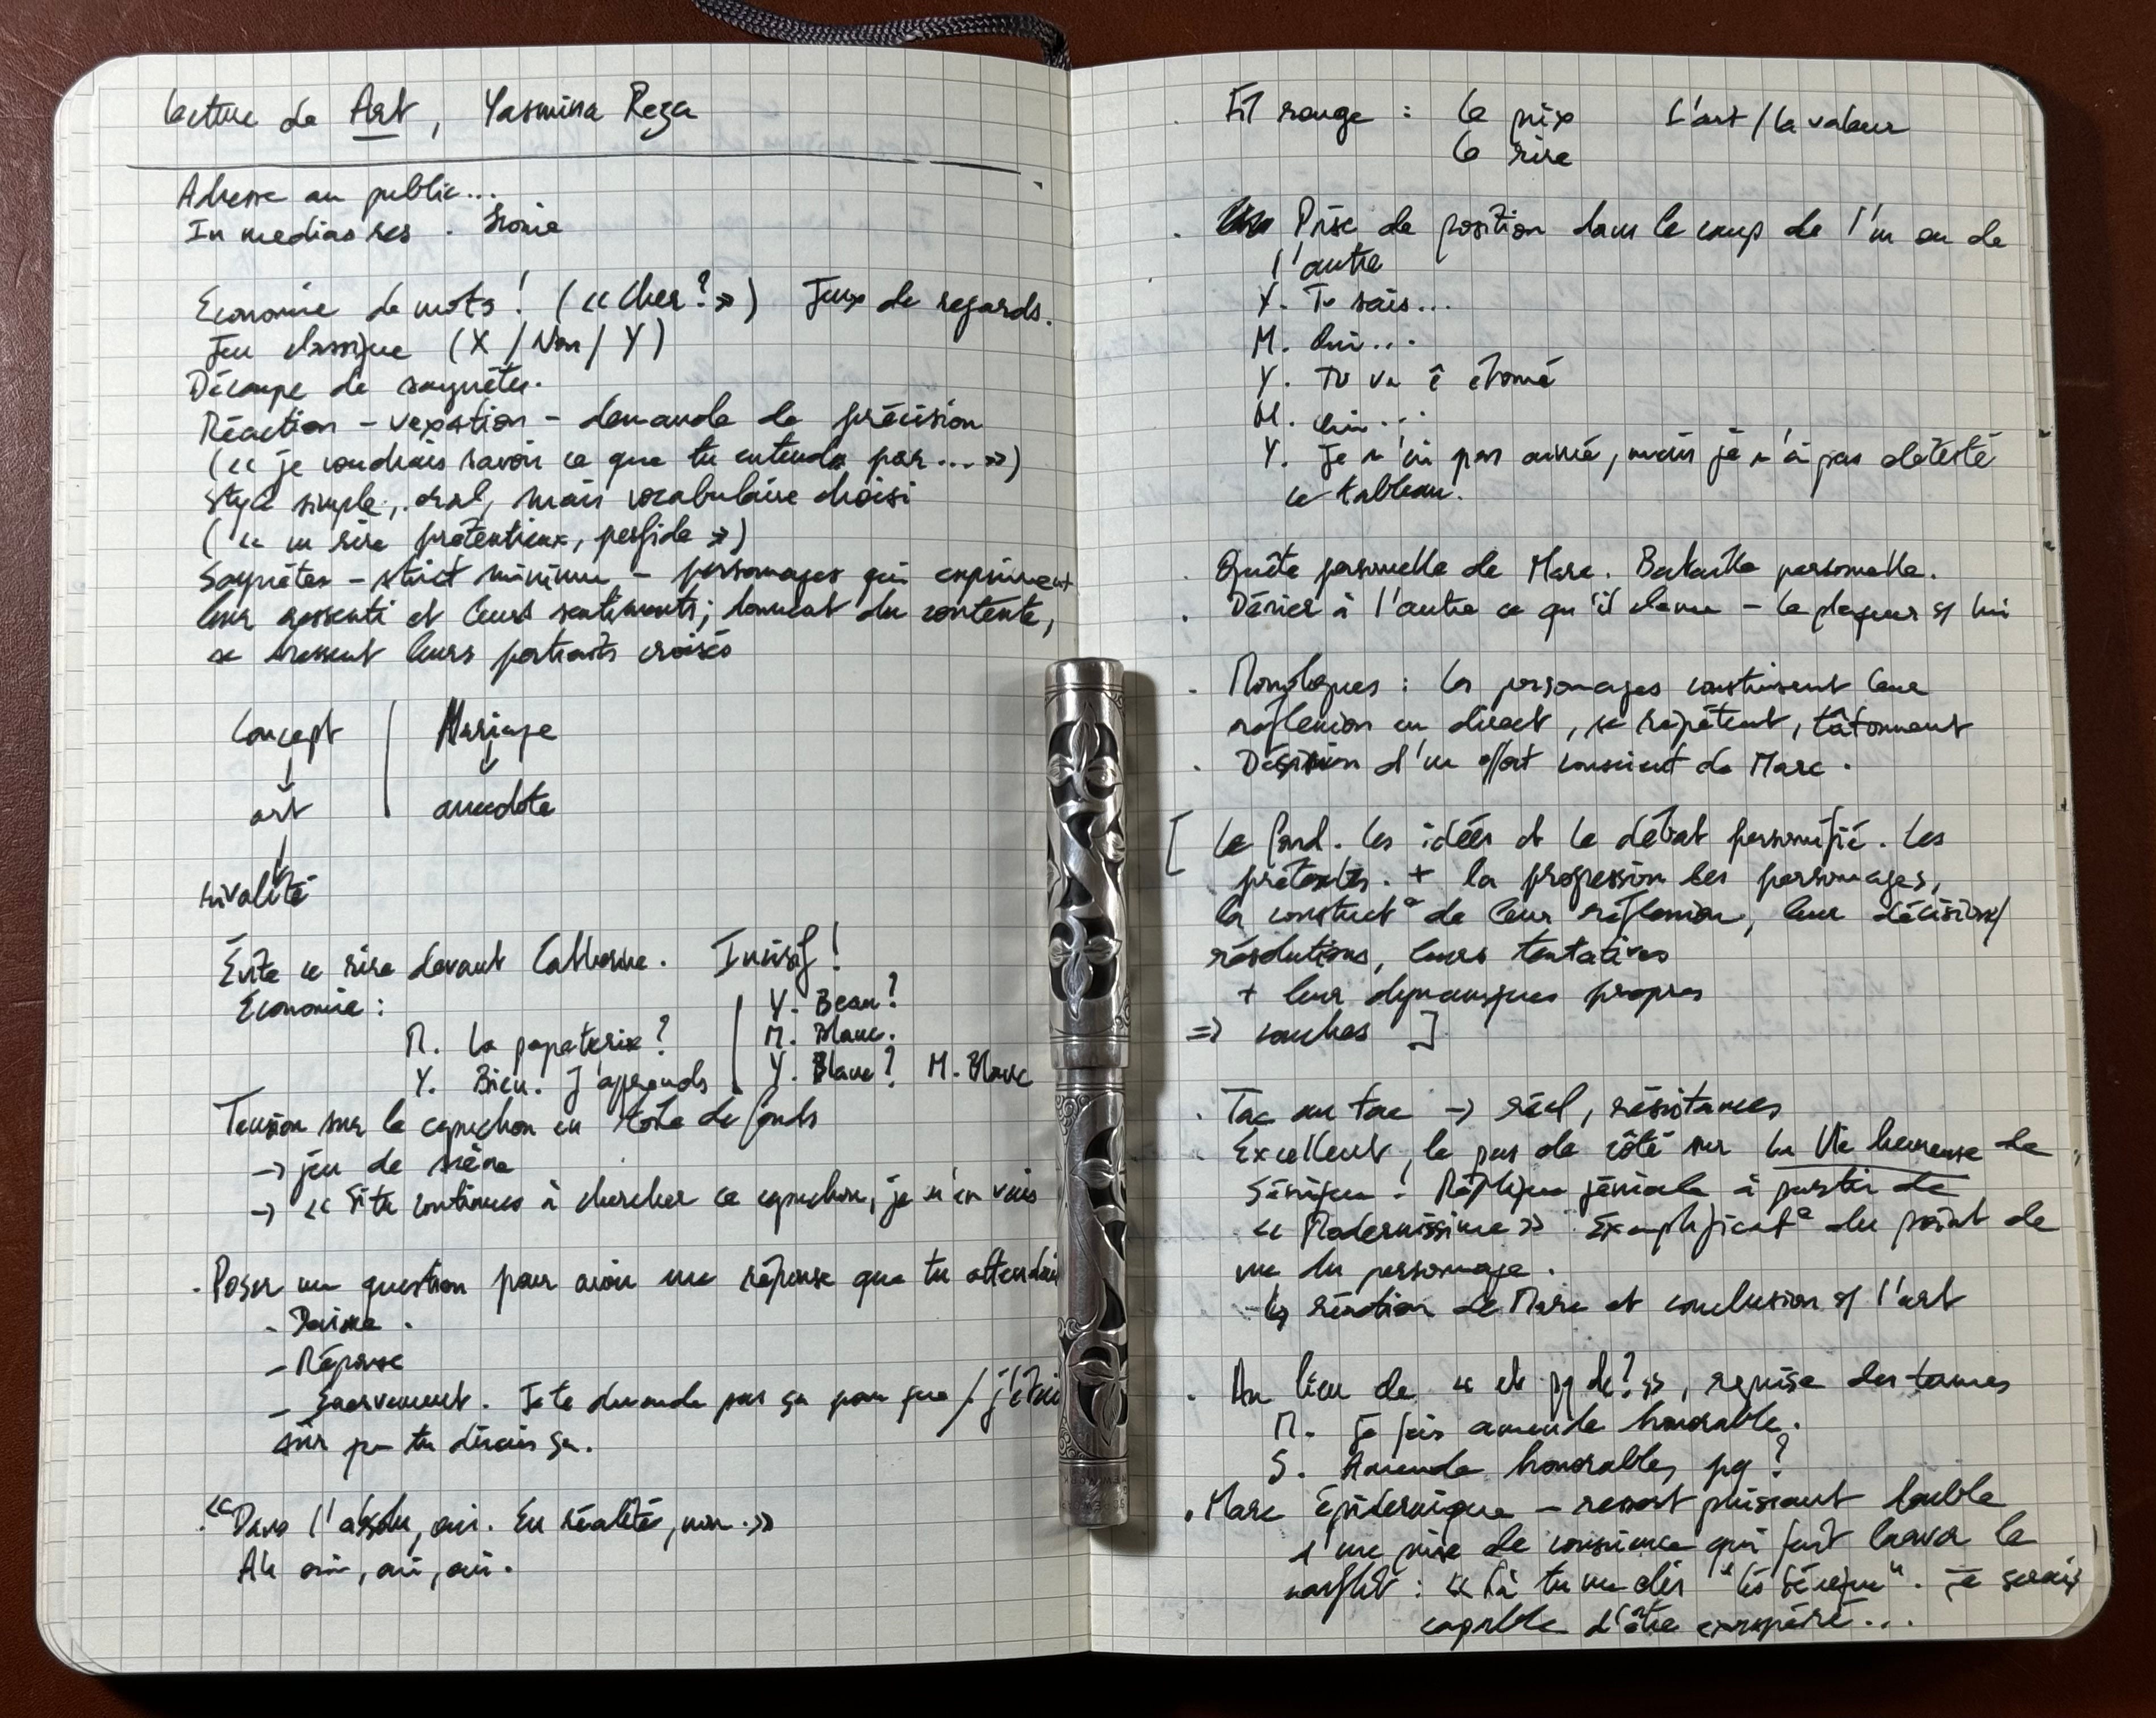 Lecture de Art, Yasmina Reza
Adresse au public...
In medias res. Ironie
Economie de mots ! (« Cher ? ») Jeux de regards.
Jeu classique (X / Non / Y)
Découpe de saynètes.
Réaction - vexation - demande de précision
(« je voudrais savoir ce que tu entends par... »)
Style simple, oral, mais vocabulaire choisi
(« un rire prétentieux, perfide »)
Saynètes - strict minimum - personnages qui expriment
leur ressenti et leurs sentiments ; donnent du contexte,
se dressent leurs portraits croisés
Concept | Mariage
↓ ↓
art anecdote
↓
rivalité
Évite ce rire devant Catherine. Incisif !
Economie :
M. La papeterie ?
Y. Bien. J'apprends
Y. Beau ?
M. Blanc.
Y. Blanc ? M. Blanc
Tension sur le capuchon en toile de fonds
→ jeu de scène
→ « Si tu continues à chercher ce capuchon, je m'en vais
. Poser une question pour avoir une réponse que tu attendais
-
- Réponse
- Énervement. Je te demande pas ça pour que / j'étais
sûr que tu dirais ça.
. « Dans l'absolu, oui. En réalité, non. »
Ah oui, oui, oui.
. Fil rouge : Le prix L'art / la valeur
Le rire
. Prise de position dans le coup de l'un ou de
l'autre
Y. Tu sais...
M. Oui...
Y. Tu va ê étonné
M. Oui...
Y. Je n'ai pas aimé, mais je n'ai pas détesté
ce tableau.
. Quête personnelle de Marc. Bataille personnelle.
. Dénier à l'autre ce qu'il - le plaquer s/ lui
. Monologues : les personnages construisent leur
réflexion en direct, se répètent, tâtonnent
. Décision d'un effort conscient de Marc.
[ Le fond. Les idées et le débat personnifié. Les
prétextes. + la progression des personnages,
la construct° de leur réflexion, leur décision/
résolutions, leurs tentatives
+ leur dynamiques propres
=> couches ]
. Tac au tac → réel, résistances
. Excellent, le pas de côté sur La Vie heureuse de
Sénèque ! Réplique géniale à partir de
« Modernissime » Exemplificat° du point de
vue du personnage.
↳ réaction de Marc et conclusion s/ l'art
. Au lieu de « et pq de ? », reprise des termes
M. Je fais amende honorable.
S. Amende honorable, pq ?
. Marc épidermique - ressort puissant double
d'une prise de conscience qui fait le
conflit : « Là tu me dis "lis Sénèque". Je serais
capable d'être exaspéré...